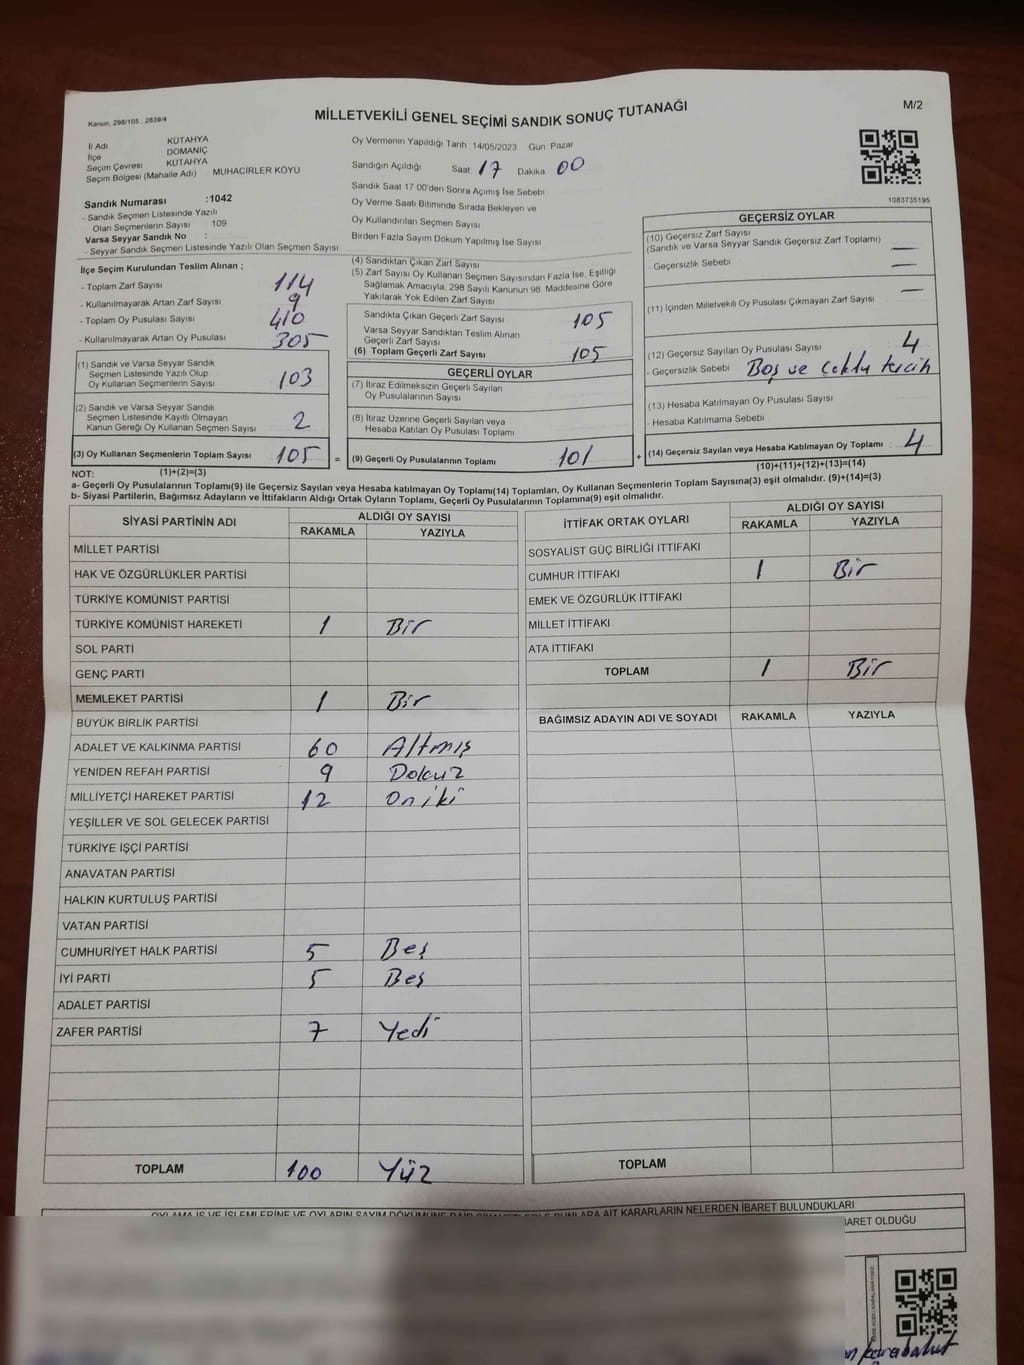 Kanun, 298/105 , 2839/4
MİLLETVEKİLİ GENEL SEÇİMİ SANDIK SONUÇ TUTANAĞI
M/2
İl Adı KÜTAHYA
İlçe DOMANİÇ
Seçim Çevresi KÜTAHYA
Seçim Bölgesi (Mahalle Adı) MUHACİRLER KÖYÜ
Sandık Numarası :1042
- Sandık Seçmen Listesinde Yazılı
Olan Seçmenlerin Sayısı 109
Varsa Seyyar Sandık No :
- Seyyar Sandık Seçmen Listesinde Yazılı Olan Seçmen Sayısı
Oy Vermenin Yapıldığı Tarih 14/05/2023 Gün Pazar
Sandığın Açıldığı Saat 17 Dakika 00
Sandık Saat 17:00'den Sonra Açılmış İse Sebebi
Oy Verme Saati Bitiminde Sırada Bekleyen ve
Oy Kullandırılan Seçmen Sayısı
Birden Fazla Sayım Döküm Yapılmış İse Sayısı
1083735195
İlçe Seçim Kurulundan Teslim Alınan ;
- Toplam Zarf Sayısı 114
- Kullanılmayarak Artan Zarf Sayısı 9
- Toplam Oy Pusulası Sayısı 410
- Kullanılmayarak Artan Oy Pusulası 305
(1) Sandık ve Varsa Seyyar Sandık
Seçmen Listesinde Yazılı Olup
Oy Kullanan Seçmenlerin Sayısı 103
(2) Sandık ve Varsa Seyyar Sandık
Seçmen Listesinde Kayıtlı Olmayan
Kanun Gereği Oy Kullanan Seçmen Sayısı 2
(3) Oy Kullanan Seçmenlerin Toplam Sayısı 105 =
(1)+(2)=(3)
(4) Sandıktan Çıkan Zarf Sayısı
(5) Zarf Sayısı Oy Kullanan Seçmen Sayısından Fazla İse, Eşitliği
Sağlamak Amacıyla, 298 Sayılı Kanunun 98. Maddesine Göre
Yakılarak Yok Edilen Zarf Sayısı
Sandıkta Çıkan Geçerli Zarf Sayısı 105
Varsa Seyyar Sandıktan Teslim Alınan
Geçerli Zarf Sayısı
(6) Toplam Geçerli Zarf Sayısı 105
GEÇERLİ OYLAR
(7) İtiraz Edilmeksizin Geçerli Sayılan
Oy Pusulalarının Sayısı
(8) İtiraz Üzerine Geçerli Sayılan veya
Hesaba Katılan Oy Pusulası Toplamı
(9) Geçerli Oy Pusulalarının Toplamı 101 +
GEÇERSİZ OYLAR
(10) Geçersiz Zarf Sayısı
(Sandık ve Varsa Seyyar Sandık Geçersiz Zarf Toplamı) —
- Geçersizlik Sebebi —
(11) İçinden Milletvekili Oy Pusulası Çıkmayan Zarf Sayısı —
(12) Geçersiz Sayılan Oy Pusulası Sayısı 4
- Geçersizlik Sebebi Boş ve çoklu tercih
(13) Hesaba Katılmayan Oy Pusulası Sayısı
- Hesaba Katılmama Sebebi
(14) Geçersiz Sayılan veya Hesaba Katılmayan Oy Toplamı 4
(10)+(11)+(12)+(13)=(14)
NOT:
a- Geçerli Oy Pusulalarının Toplamı(9) ile Geçersiz Sayılan veya Hesaba katılmayan Oy Toplamı(14) Toplamları, Oy Kullanan Seçmenlerin Toplam Sayısına(3) eşit olmalıdır. (9)+(14)=(3)
b- Siyasi Partilerin, Bağımsız Adayların ve İttifakların Aldığı Ortak Oyların Toplamı, Geçerli Oy Pusulalarının Toplamına(9) eşit olmalıdır.
SİYASİ PARTİNİN ADI ALDIĞI OY SAYISI
RAKAMLA YAZIYLA
MİLLET PARTİSİ
HAK VE ÖZGÜRLÜKLER PARTİSİ
TÜRKİYE KOMÜNİST PARTİSİ
TÜRKİYE KOMÜNİST HAREKETİ 1 Bir
SOL PARTİ
GENÇ PARTİ
MEMLEKET PARTİSİ 1 Bir
BÜYÜK BİRLİK PARTİSİ
ADALET VE KALKINMA PARTİSİ 60 Altmış
YENİDEN REFAH PARTİSİ 9 Dokuz
MİLLİYETÇİ HAREKET PARTİSİ 12 Oniki
YEŞİLLER VE SOL GELECEK PARTİSİ
TÜRKİYE İŞÇİ PARTİSİ
ANAVATAN PARTİSİ
HALKIN KURTULUŞ PARTİSİ
VATAN PARTİSİ
CUMHURİYET HALK PARTİSİ 5 Beş
İYİ PARTİ 5 Beş
ADALET PARTİSİ
ZAFER PARTİSİ 7 Yedi
TOPLAM 100 Yüz
İTTİFAK ORTAK OYLARI ALDIĞI OY SAYISI
RAKAMLA YAZIYLA
SOSYALİST GÜÇ BİRLİĞİ İTTİFAKI
CUMHUR İTTİFAKI 1 Bir
EMEK VE ÖZGÜRLÜK İTTİFAKI
MİLLET İTTİFAKI
ATA İTTİFAKI
TOPLAM 1 Bir
BAĞIMSIZ ADAYIN ADI VE SOYADI RAKAMLA YAZIYLA
TOPLAM
OYLAMA İŞ VE İŞLEMLERİNE VE OYLARIN SAYIM DÖKÜMÜNE DAİR ŞİKAYETLERLE BUNLARA AİT KARARLARIN NELERDEN İBARET BULUNDUKLARI
BARET OLDUĞU
karabulut